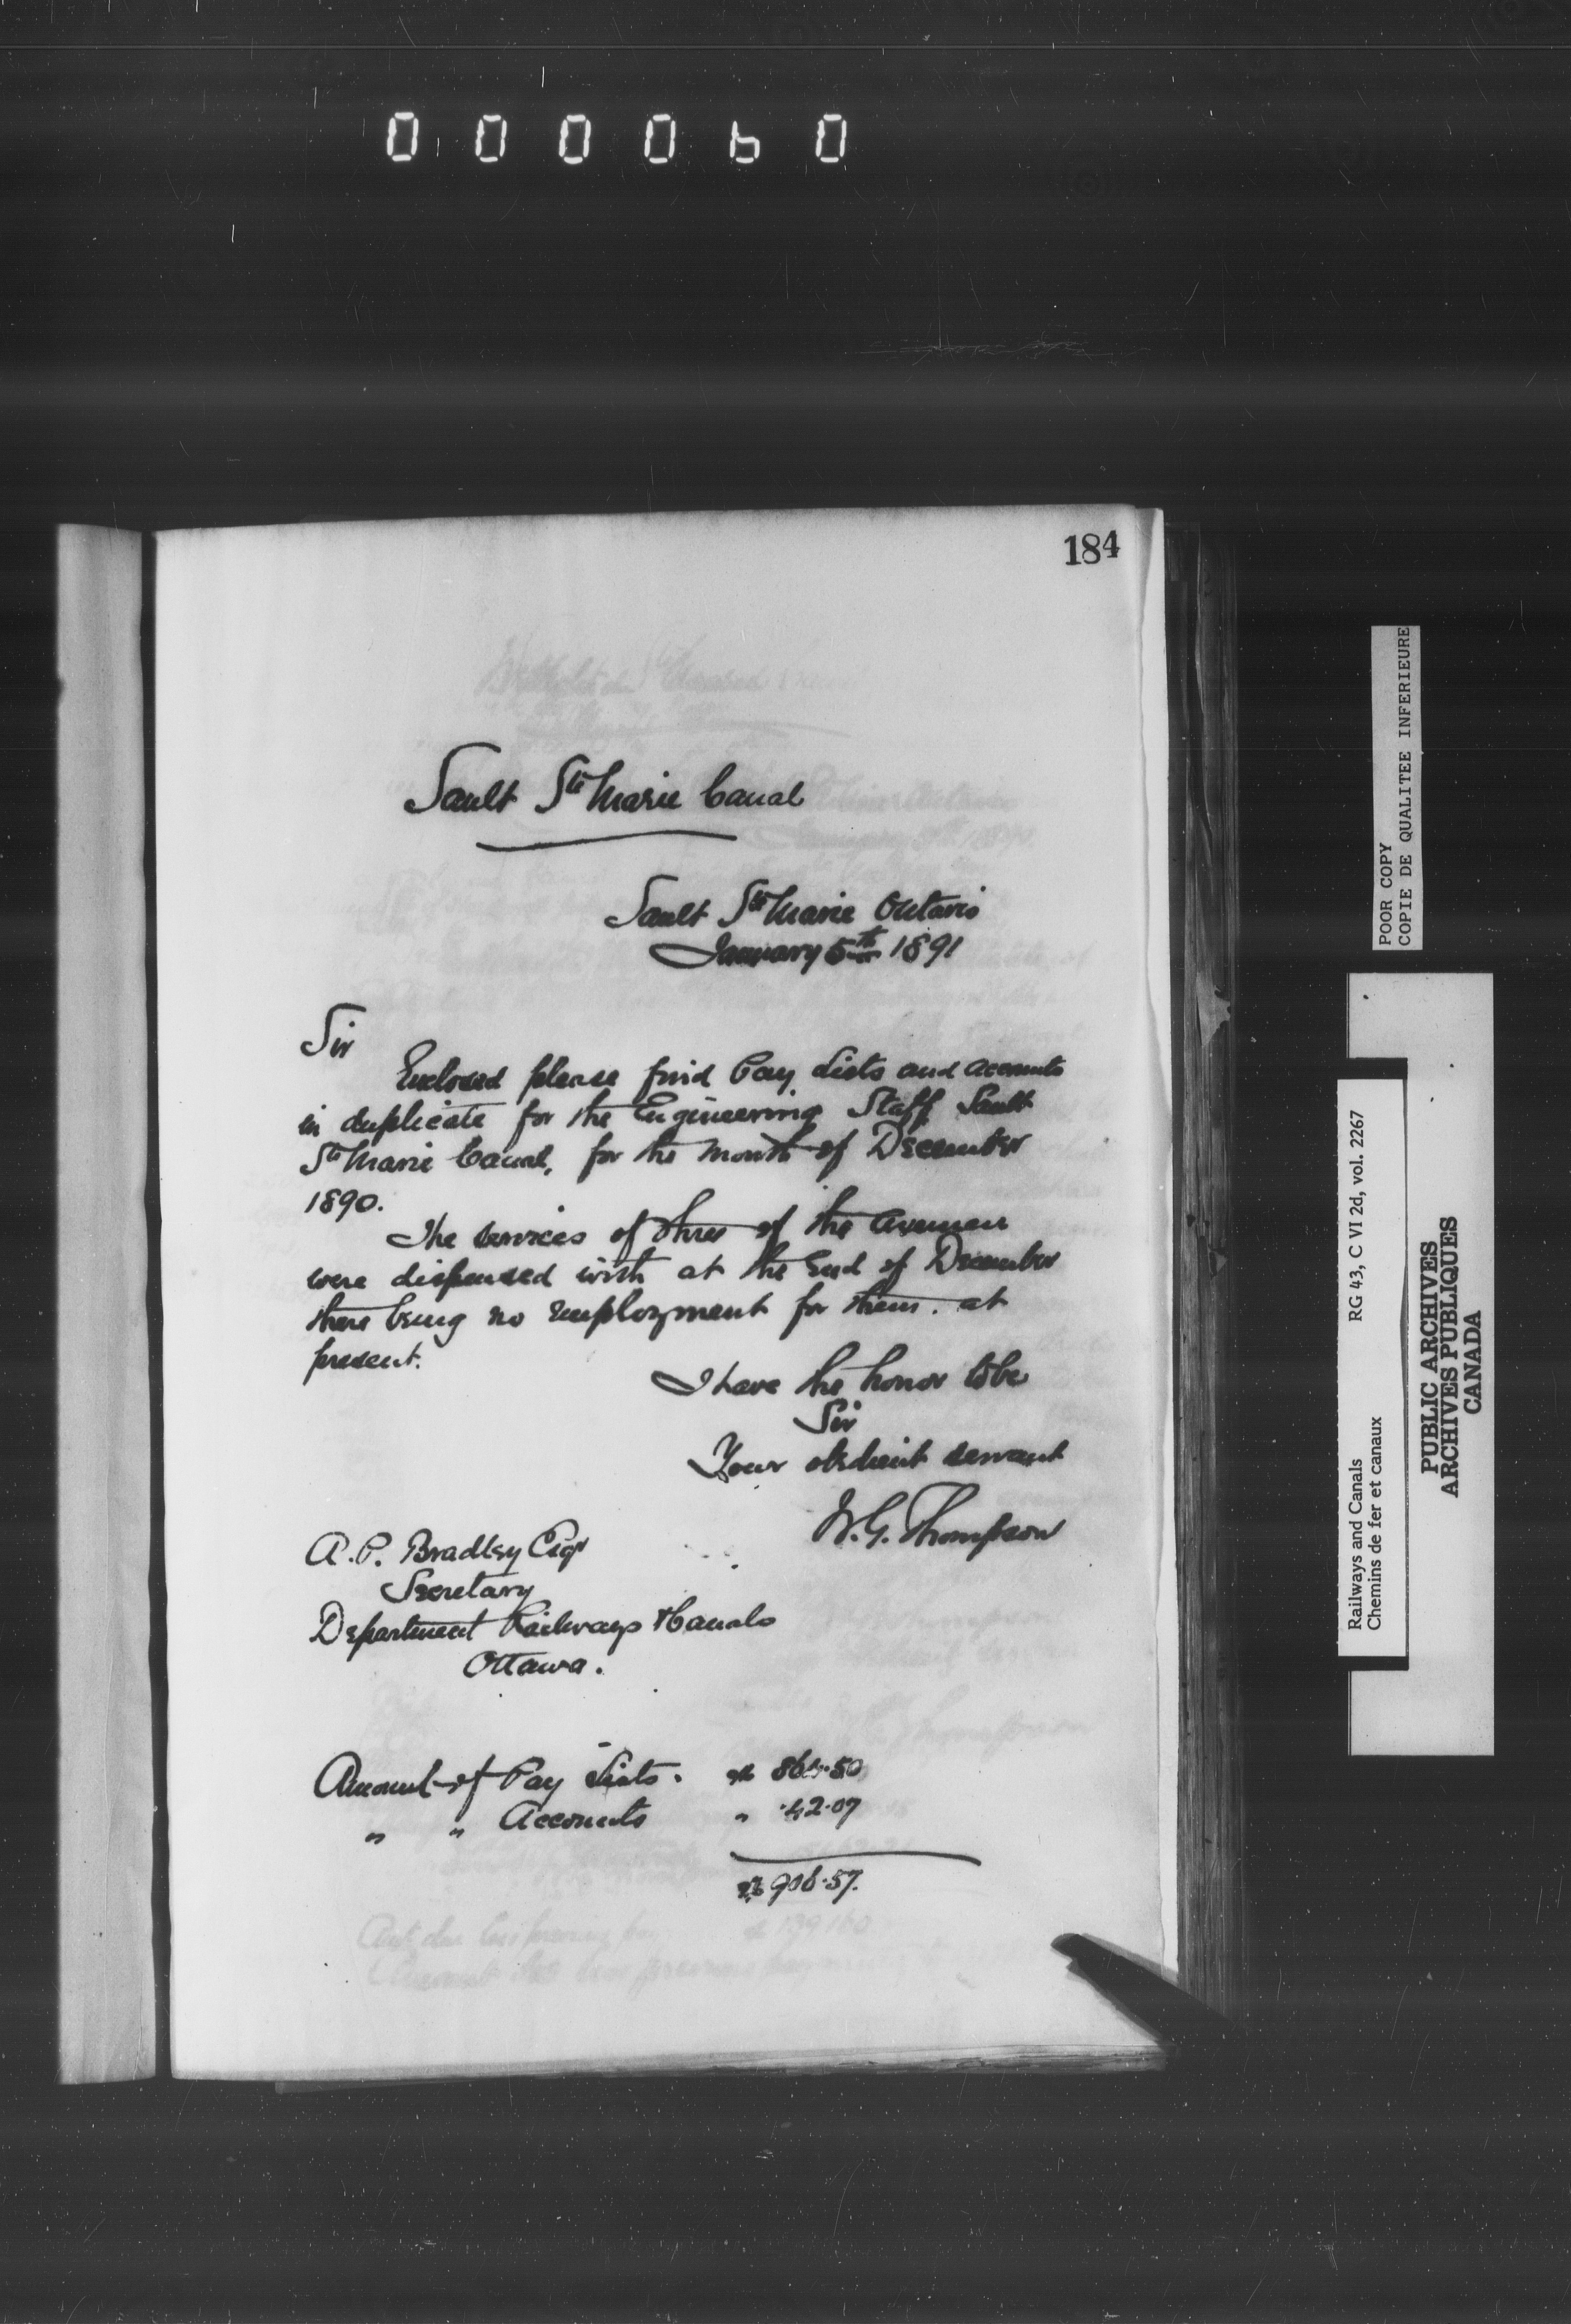 000060
184
Sault Ste Marie Canal
Sault Ste Marie Ontario
January 5th 1891
Sir
Enclosed please find Pay Lists and accounts
in duplicate for the Engineering Staff Sault
Ste Marie Canal, for the month of December
1890.
The services of three of the axemen
were dispensed with at the end of December
there being no employment for them. at
present.
I have the honor to be
Sir
Your obedient servant
W. G. Thompson
A. P. Bradley Esqr
Secretary
Department Railways & Canals
Ottawa.
Amount of Pay Lists. $ 864.50
" " Accounts " 42.07
$ 906.57.
POOR COPY
COPIE DE QUALITEE INFERIEURE
Railways and Canals RG 43, C VI 2d, vol. 2267
Chemins de fer et canaux
PUBLIC ARCHIVES
ARCHIVES PUBLIQUES
CANADA